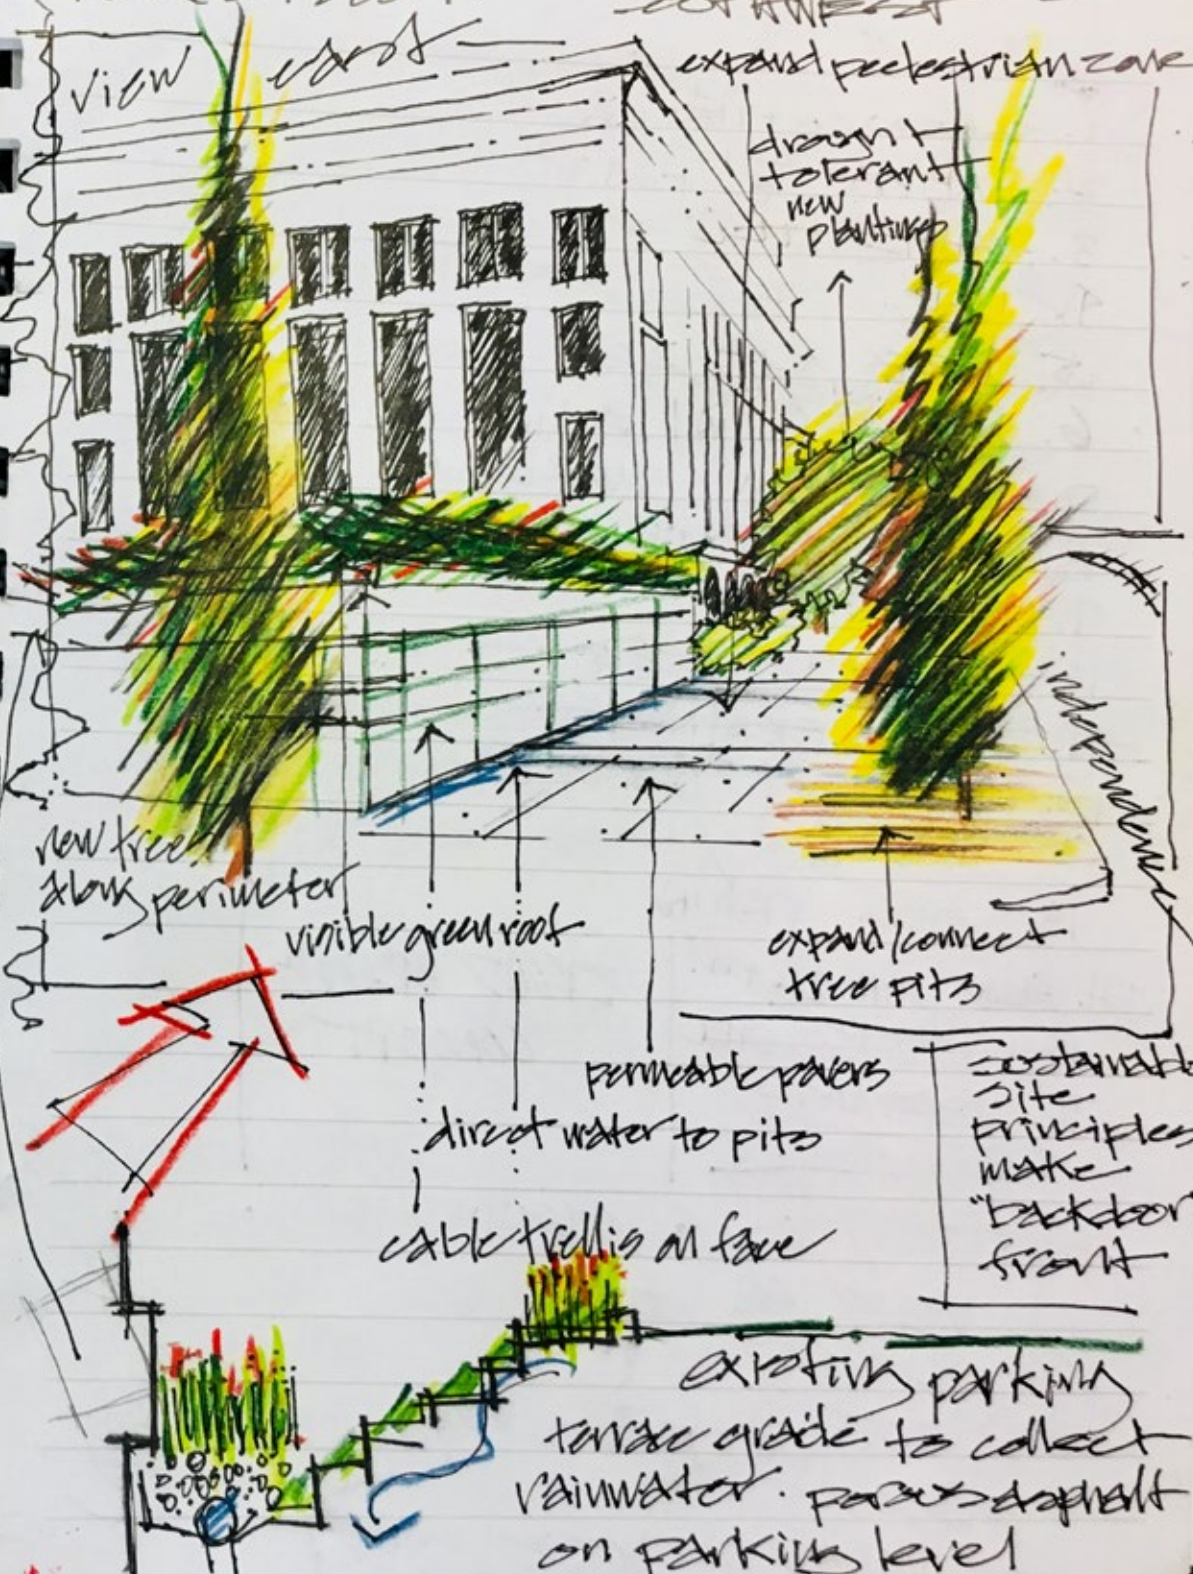 SOUTHWEST
view east
expand pedestrian zone
drought
tolerant
new
plantings
independence
new trees
along perimeter
visible green roof
expand/connect
tree pits
permeable pavers
direct water to pits
cable trellis on face
sustainable
site
principles
make
"backdoor
front
existing parking
terrace grade to collect
rainwater. porous asphalt
on parking level